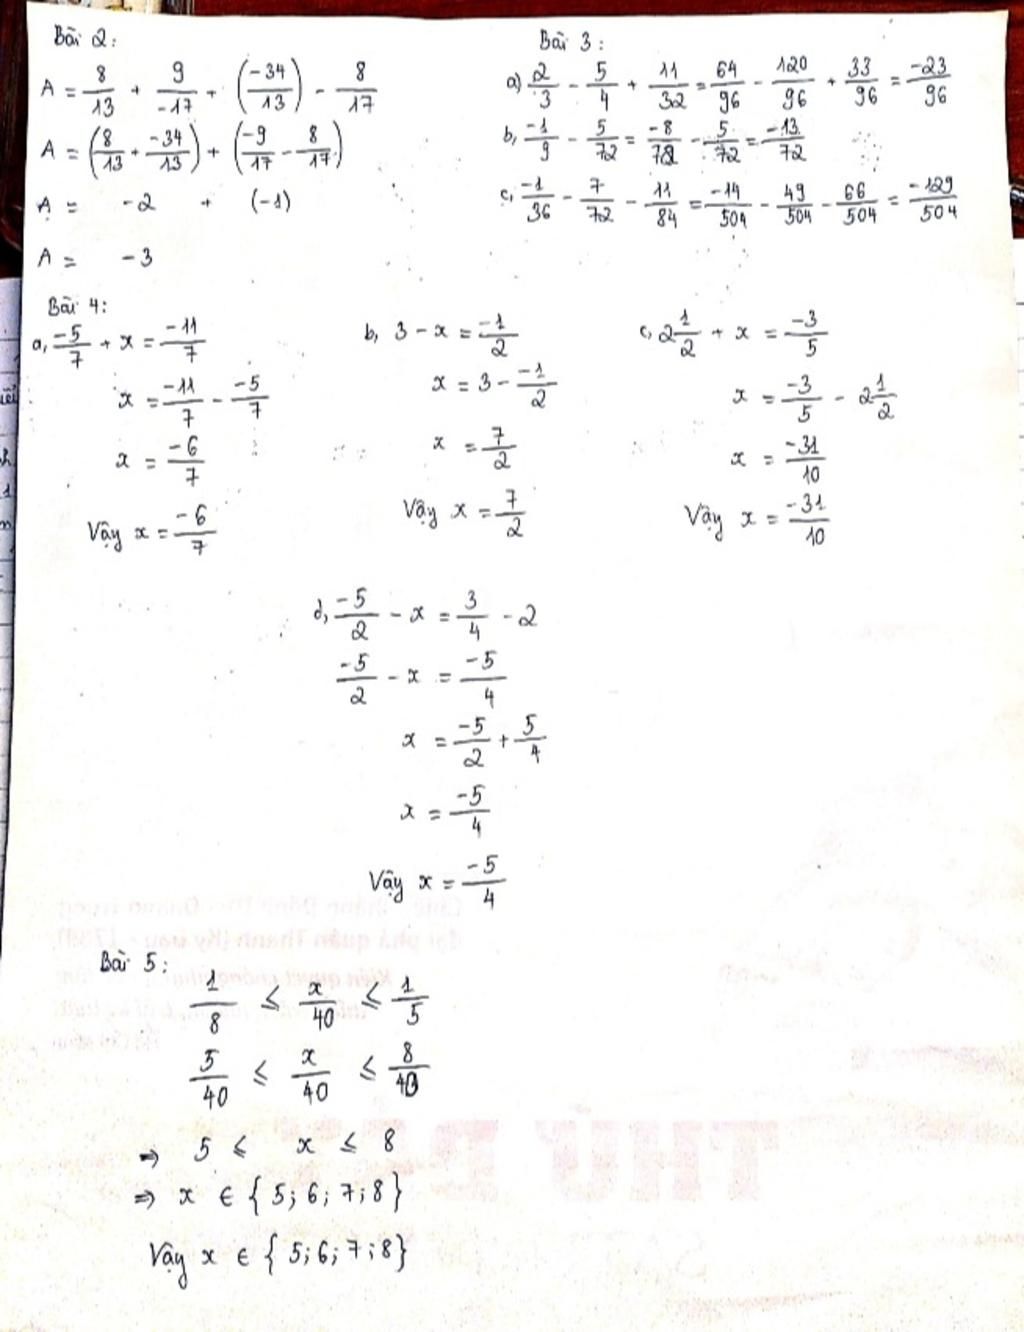 Bài 2:
A = 8/13 + 9/-17 + (-34/13) - 8/17
A = (8/13 + -34/13) + (-9/17 - 8/17)
A = -2 + (-1)
A = -3
Bài 3:
a) 2/3 - 5/4 + 11/32 = 64/96 - 120/96 + 33/96 = -23/96
b, -1/9 - 5/72 = -8/72 - 5/72 = -13/72
c, -1/36 - 7/72 - 11/84 = -14/504 - 49/504 - 66/504 = -129/504
Bài 4:
a, -5/7 + x = -11/7
x = -11/7 - -5/7
x = -6/7
Vậy x = -6/7
b, 3 - x = -1/2
x = 3 - -1/2
x = 7/2
Vậy x = 7/2
c, 2 1/2 + x = -3/5
x = -3/5 - 2 1/2
x = -31/10
Vậy x = -31/10
d, -5/2 - x = 3/4 - 2
-5/2 - x = -5/4
x = -5/2 + 5/4
x = -5/4
Vậy x = -5/4
Bài 5:
1/8 ≤ x/40 ≤ 1/5
5/40 ≤ x/40 ≤ 8/40
⇒ 5 ≤ x ≤ 8
⇒ x ∈ { 5; 6; 7; 8 }
Vậy x ∈ { 5; 6; 7; 8 }